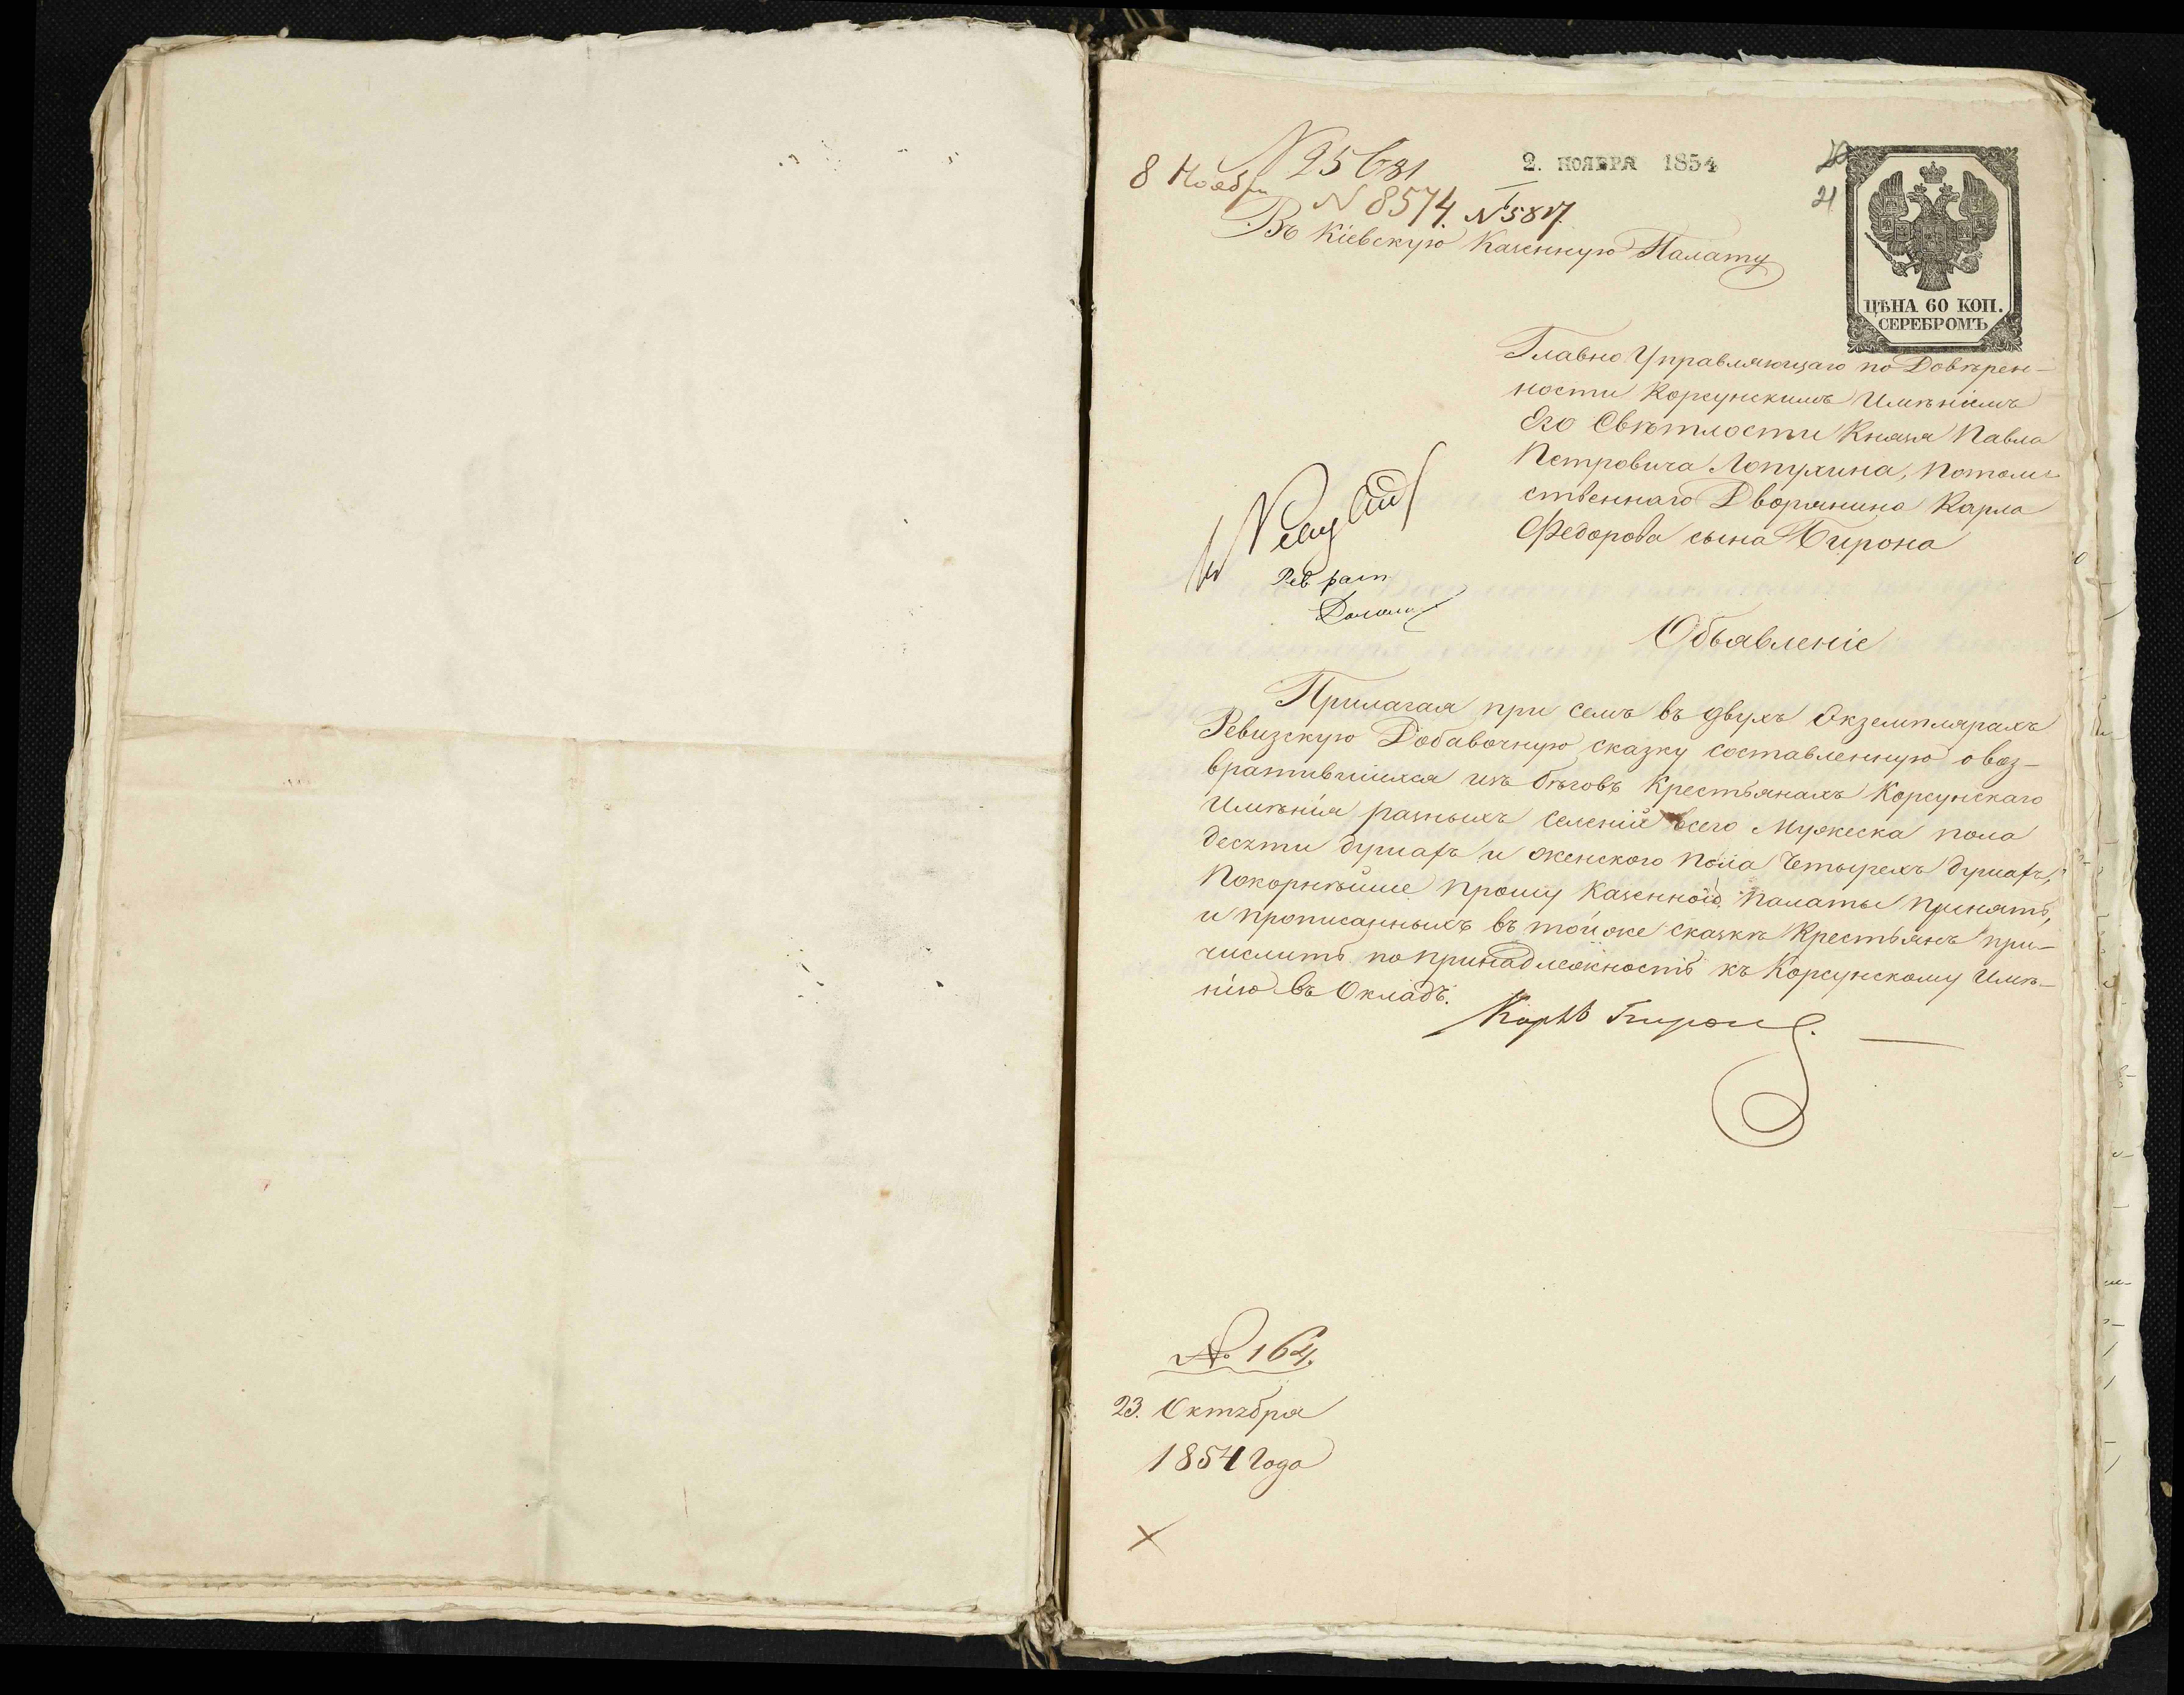 8 Ноября
N 25681
2. НОЯБРЯ 1854
20
21
N 8574. N 5817.
Въ Кіевскую Казенную Палату
ЦѢНА 60 КОП.
СЕРЕБРОМЪ
Главно Управляющаго по Довѣрен-
ности Корсунскимъ Имѣніемъ
Его Свѣтлости Князя Павла
Петровича Лопухина, Потом-
ственнаго Дворянина Карла
Федорова сына Бирона
Рев.
Объявленіе
Прилагая при семъ въ двухъ Экземплярахъ
Ревизскую Добавочную сказку составленную о воз-
вратившихся изъ бѣговъ Крестьянахъ Корсунскаго
Имѣнія разныхъ селеній всего Мужеска пола
десяти душахъ и женского пола Четырехъ душахъ,
Покорнѣйше прошу Казенной Палаты принять,
и прописанныхъ въ той же сказкѣ Крестьянъ при-
числить по принадлежность къ Корсунскому Имѣ-
нію въ Окладъ.
Карлъ Биронъ.
№ 164.
23. Октября
1854 Года